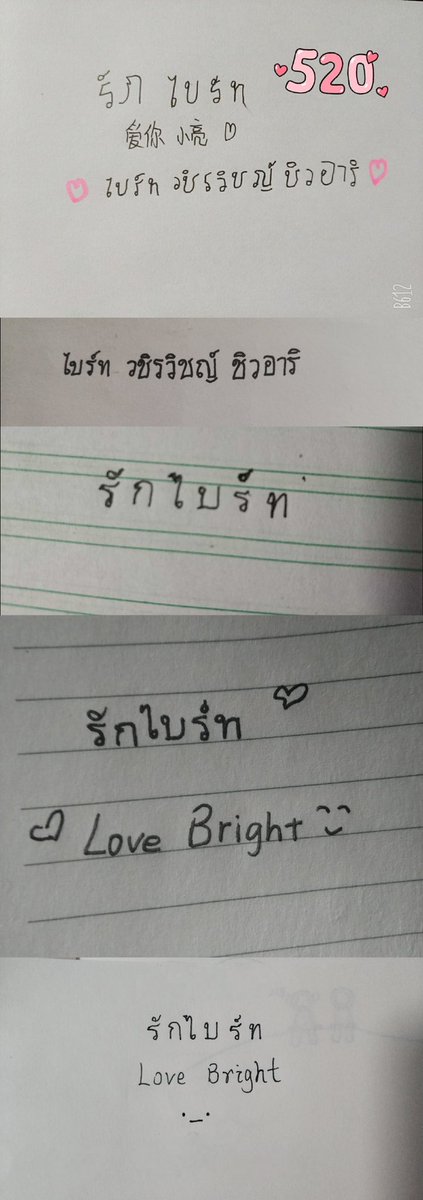 520
รักไบร์ท
爱你 小亮
ไบร์ท วชิรวิชญ์ ชิวอารี
B612
ไบร์ท วชิรวิชญ์ ชิวอารี
รักไบร์ท
รักไบร์ท
Love Bright
รักไบร์ท
Love Bright